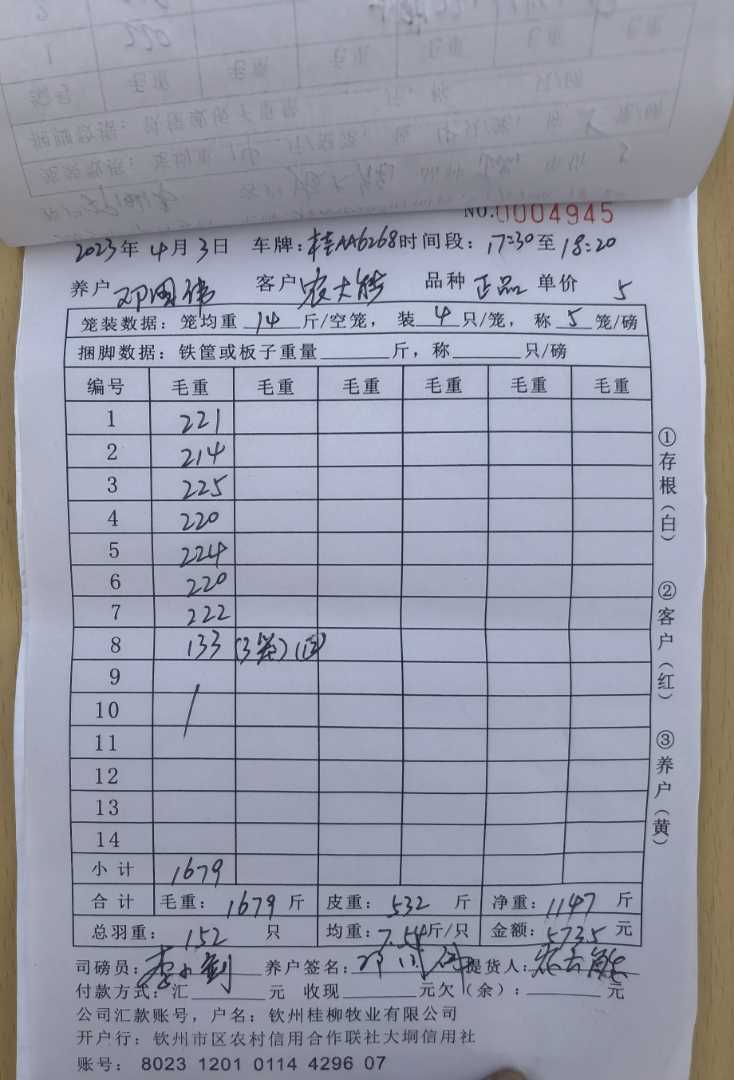 NO.0004945
2023年4月3日 车牌:桂AA6268时间段:17:30至18:20
养户 邓国伟 客户 农大能 品种 正品 单价 5
笼装数据:笼均重 14 斤/空笼,装 4 只/笼,称 5 笼/磅
捆脚数据:铁筐或板子重量______斤,称______只/磅
编号 毛重 毛重 毛重 毛重 毛重 毛重
1 221
2 214
3 225
4 220
5 224
6 220
7 222
8 133 (3笼)
9
10
11
12
13
14
小计 1679
合计 毛重:1679斤 皮重:532斤 净重:1147斤
总羽重:152只 均重:7.54斤/只 金额:5735元
司磅员: 养户签名: 提货人:农大能
付款方式:汇______元 收现______元欠(余):______元
公司汇款账号,户名:钦州桂柳牧业有限公司
开户行:钦州市区农村信用合作联社大垌信用社
账号: 8023 1201 0114 4296 07
①存根(白)
②客户(红)
③养户(黄)